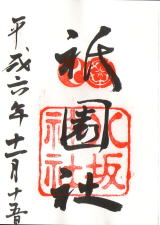 祇園社
八坂神社
平成六年十一月十五日